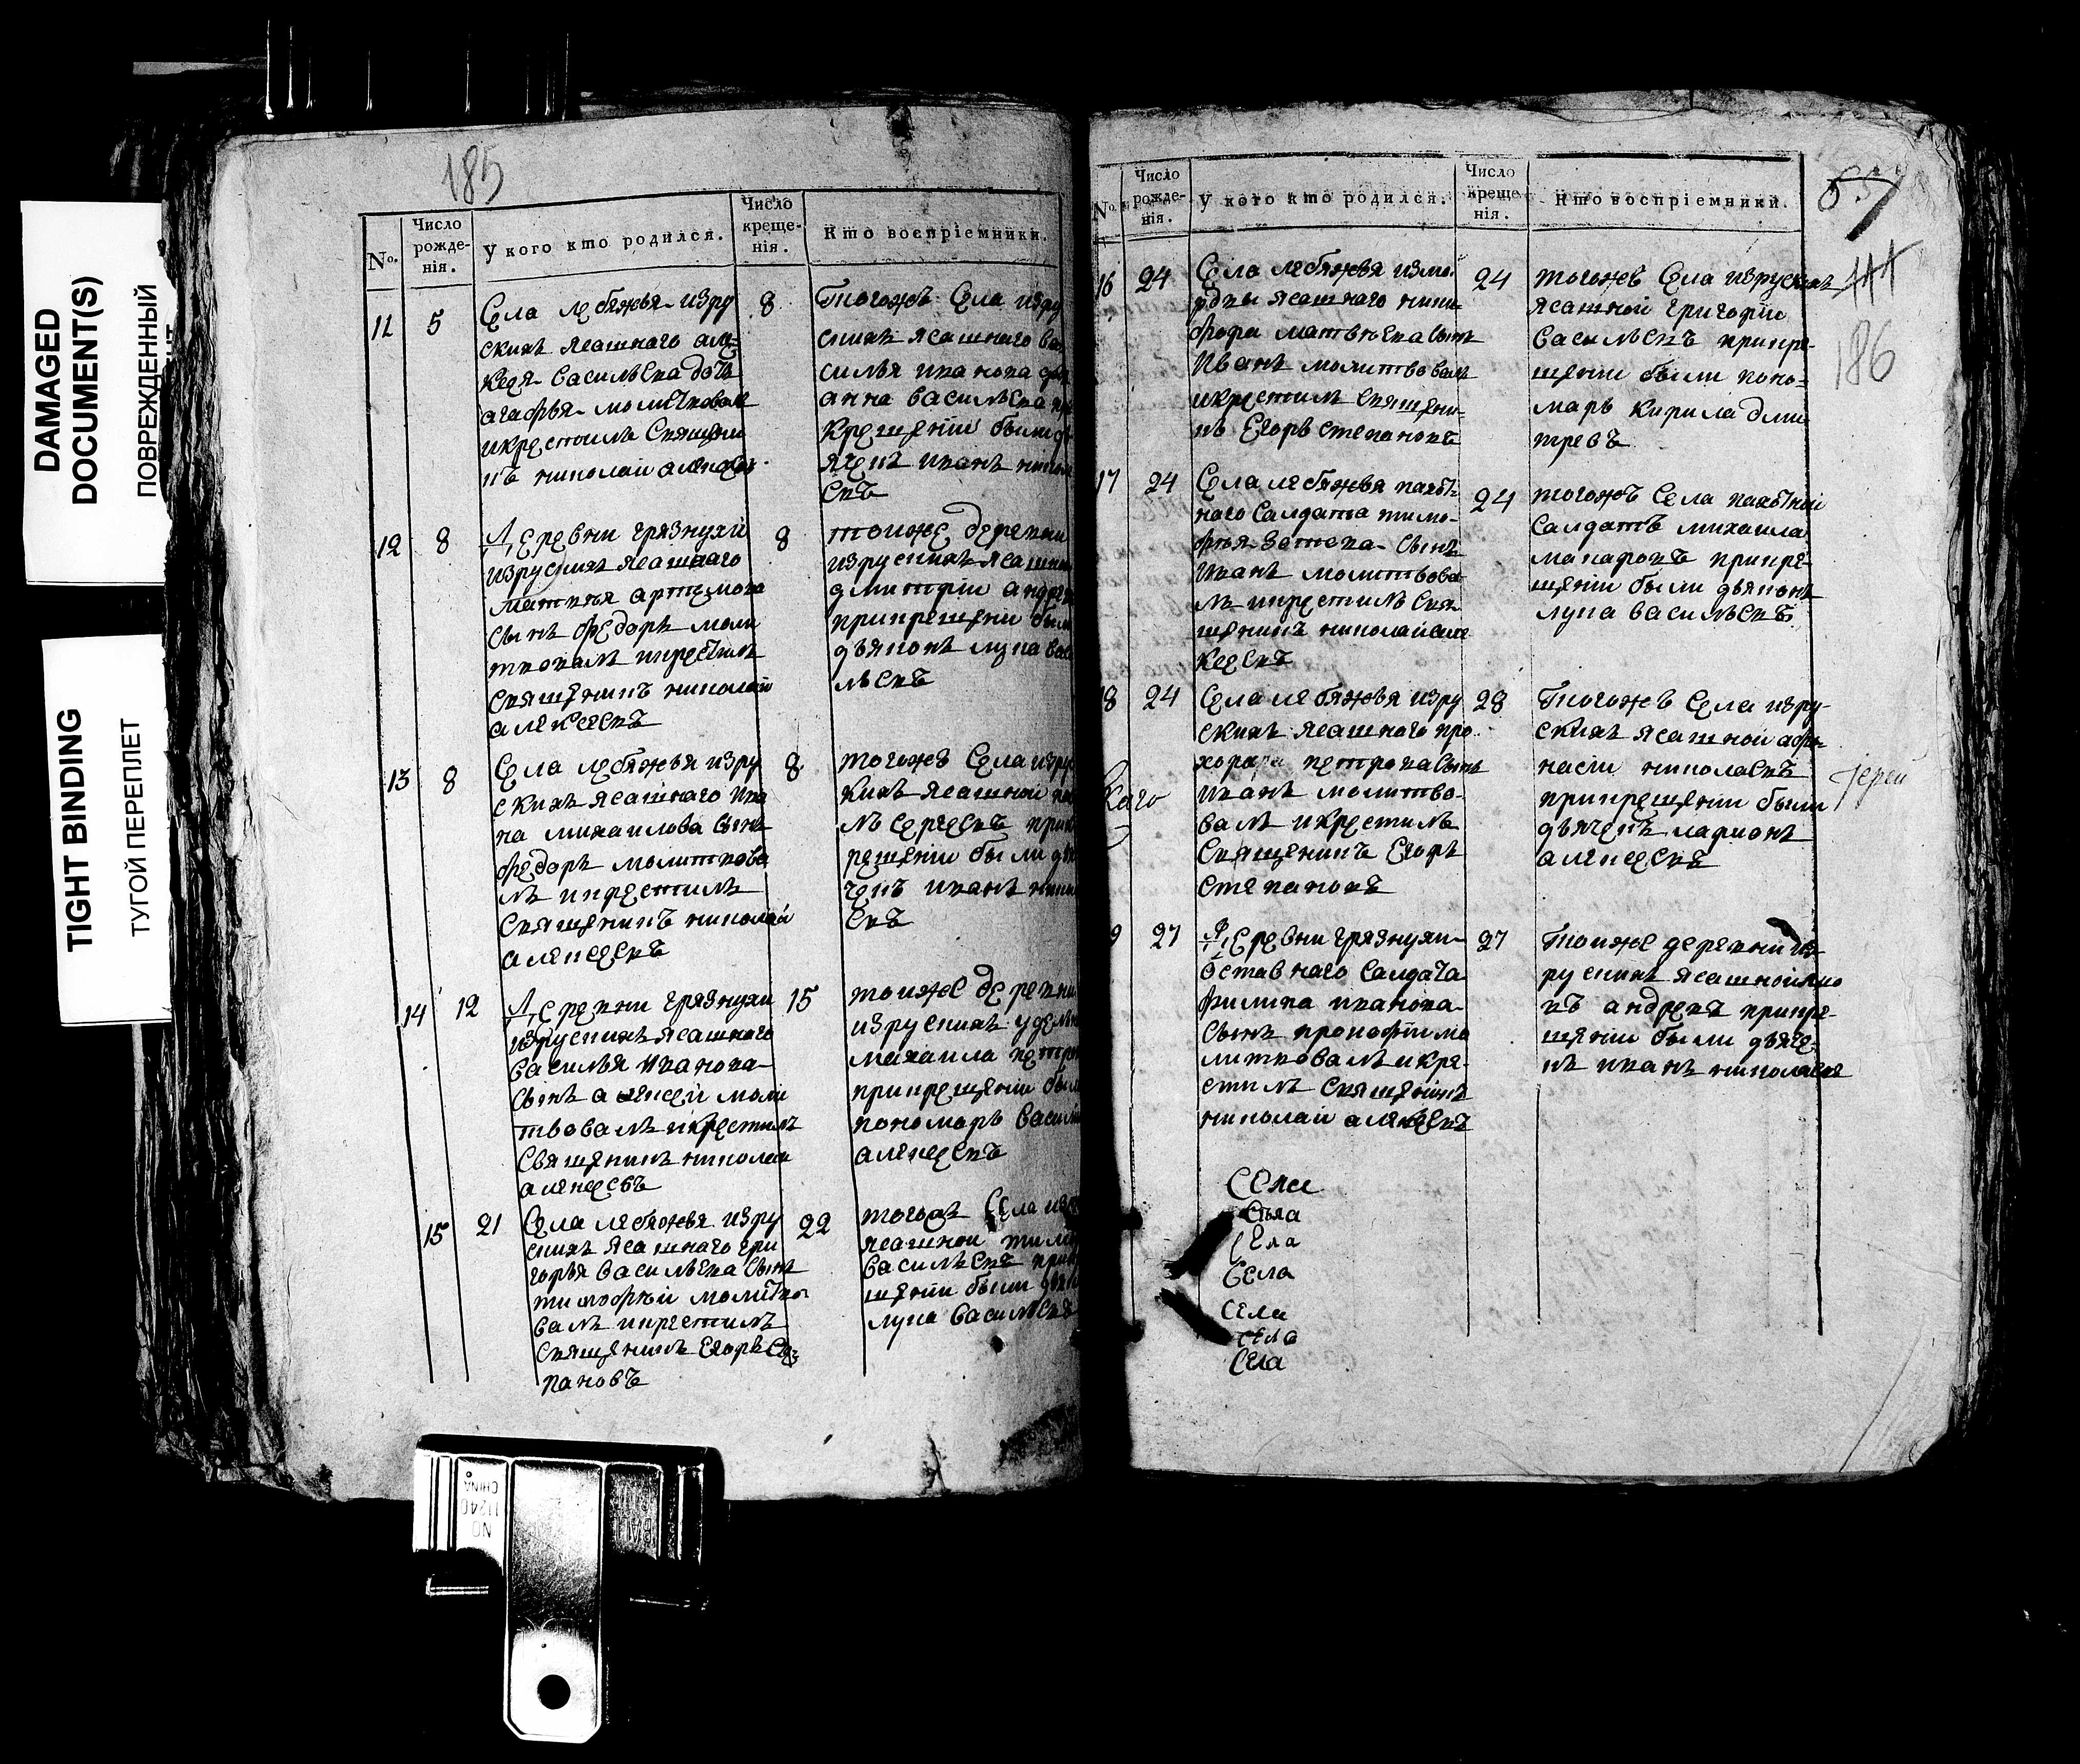 DAMAGED
DOCUMENT(S)
ПОВРЕЖДЕННЫЙ
TIGHT BINDING
ТУГОЙ ПЕРЕПЛЕТ
185
No.
Число рожде-нія.
У кого кто родился.
Число креще-нія.
Кто воспріемники.
11 5
Села лебяжья изру
скихъ ясашнаго але
кеея васильева дочь
агафья молитвовалъ
икрестилъ Священи
къ николаи алексе
8
Тогожъ Села изру
скихъ ясашнаго ва
силья иванова
анна васильева
крещеніи были
ячекъ иванъ никол
евъ
12 8
Деревни грязнухи
изрускихъ ясашнаго
матвья артемова
сынъ федоръ моли
твовалъ икрестилъ
священикъ николай
алексеевъ
8
тоиже деревни
изрускихъ ясашн
дмитріи андре
прикрещени был
дьяконъ лупа ва
льевъ
13 8
Села лебяжья изру
скихъ ясашнаго ива
на михаилова сынъ
федоръ молитвова
лъ икрестилъ
священикъ николаи
алексеевъ
8
тогожъ Села изрус
кихъ ясашнои
лъ сергеевъ прик
рещеніи были дья
чекъ иванъ никол
евъ
14 12
Деревни грязнухи
изрускихъ ясашнаго
василья иванова
сынъ алексеи моли
твовалъ икрестилъ
священикъ николаи
алексеевъ
15
тоиже деревни
изрускихъ удельн
михаила петро
прикрещеніи был
пономарь васили
алексеевъ
15 21
Села лебяжья изру
скихъ ясашнаго гри
горья васильева сынъ
тимофѣи молитво
валъ икрестилъ
священикъ Егоръ Сте
пановъ
22
тогожъ Села из
ясашнои тимо
васильевъ прик
щеніи были дьяк
лупа васильевъ
No.
Число рожде-нія.
У кого кто родился.
Число креще-нія.
Кто воспріемники.
657
111
186
16 24
Села лебяжья измо
рдвы ясашнаго ники
фора матвѣева сынъ
Иванъ молитвовалъ
икрестилъ священи
къ Егоръ степановъ
24
тогожъ Села изрускихъ
ясашной григории
васильевъ прикре-
щеніи были поно-
марь кирила дми
треевъ
17 24
Села лебяжья пахот-
наго Салдата тимо-
фея сынъ
иванъ молитвова-
лъ икрестилъ свя-
щеникъ николай але
ксеевъ
24
тогожъ Села пахотной
Салдатъ михаила
макаровъ прикре-
щеніи были дьяконъ
лупа васильевъ
18 24
Села лебяжья изру
скихъ ясашнаго про
хора петрова сынъ
иванъ молитво-
валъ икрестилъ
священикъ Егоръ
степановъ
28
Тогожъ Села изру-
скихъ ясашнои афо-
насіи николаевъ
прикрещеніи были
дьячекъ ларионъ
алексеевъ
Каго
Іерей
9 27
Деревни грязнухи
Оставнаго Салдата
филипа иванова
сынъ прокофіи мо
литвовалъ икре-
стилъ священикъ
николаи алексеевъ
27
Тоиже деревни из
рускихъ ясашной яко
въ андреевъ прикре-
щеніи были дьяче-
къ иванъ николаевъ
Села
Села
Села
Села
Села
Села